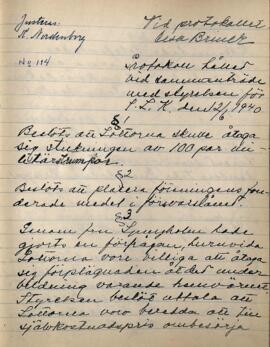 Justeras:
K. Nordenborg
Vid protokollet
No 114
Protokoll hållet
vid sammanträde
med styrelsen för
S.L.K. den 12/6 1940
§1
Beslöts att Lottorna skulle åtaga
sig stickningen av 100 par mi-
litärstrumpor.
§2
Beslöts att placera föreningens fon-
derade medel i försvarslånet.
§3
Genom fru Lynnholm hade
gjorts en förfrågan, huruvida
Lottorna voro villiga att åtaga
sig förplägnaden åt det under
bildning varande hemvärnet
Styrelsen beslöt uttala att
Lottorna voro beredda att till
självkostnadspris ombesörja